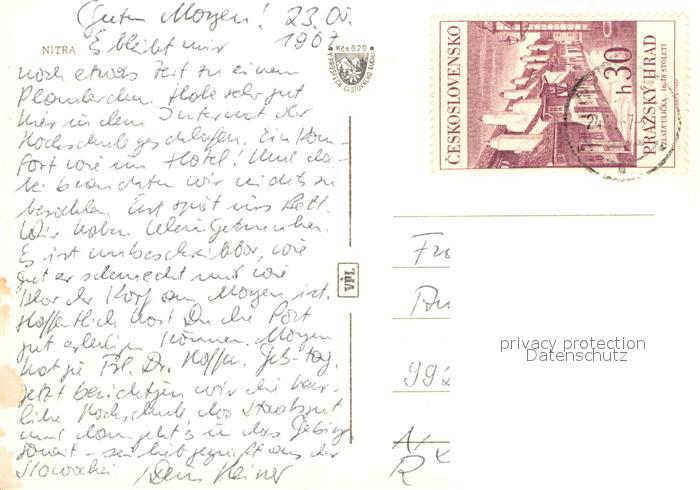 Guten Morgen! 23.
1967
NITRA
Es bleibt mir
noch etwas Zeit zu einem
Plauderchen. Habe sehr gut
hier in dem Internat der
Hochschule geschlafen. Ein Kom-
fort wie im Hotel! Und da-
bei brauchten wir nichts zu
bezahlen. Erst spät ins Bett.
Wir haben Wein getrunken.
Es ist unbeschreibbar, wie
gut er schmeckt und wie
klar der Kopf am Morgen ist.
Hoffentlich hast Du die Post
gut erledigen können. Morgen
hat ja Frl. Dr. Hoffm. Geb-tag.
Jetzt besichtigen wir die herr-
liche Hochschule, das Staatsgut
und dann geht's in das Gebirge
sei lieb gegrüßt aus der
Slowakei Dein Heiner
Kčs 0,20
VPL
ČESKOSLOVENSKO
30 h
PRAŽSKÝ HRAD
ZLATÁ ULIČKA, 16.-18. STOLETÍ
privacy protection
Datenschutz